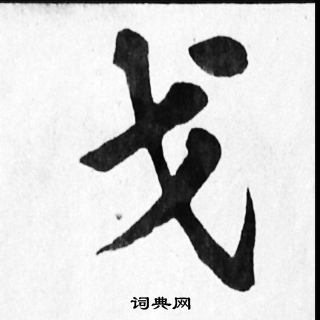 戈
词典网